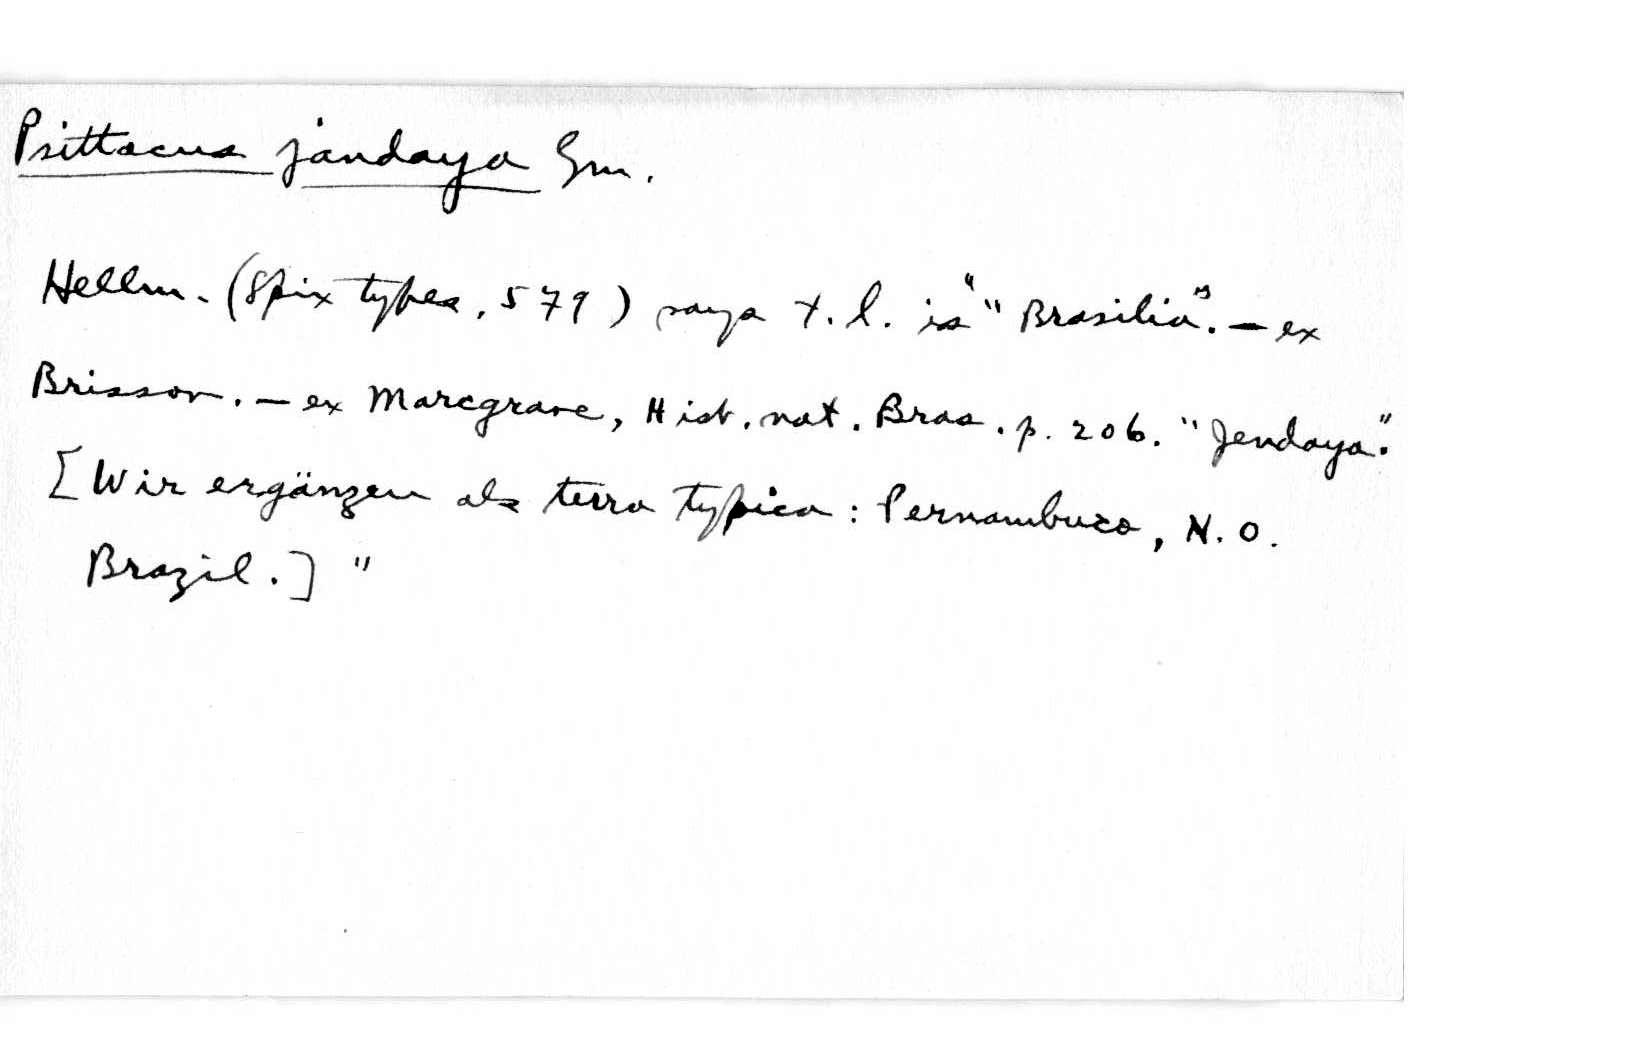 Psittacus jandaya Gm.
Hellm. (Spix types, 579) says t.l. is "" Brasilia". — ex
Brisson. — ex Marcgrave, Hist. nat. Bras. p. 206. "Jendaya".
[Wir ergänzen als terra typica: Pernambuco, N.O.
Brazil.] "